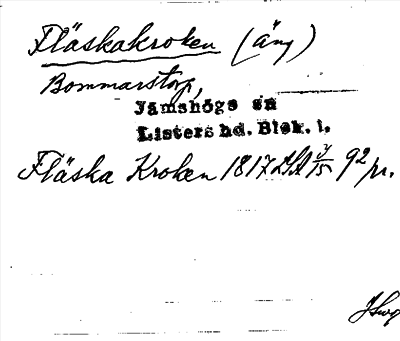 Fläskakroken (äng)
Bommarstorp,
Jämshögs sn
Listers hd. Blek. l.
Fläska Kroken 1817 LSA 3/15 92 pr.